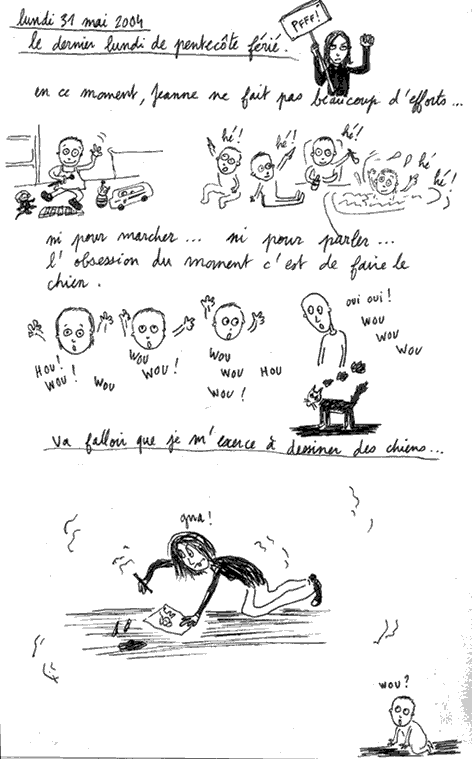 lundi 31 mai 2004
le dernier lundi de pentecôte férié.
PFFF!
en ce moment, Jeanne ne fait pas beaucoup d'efforts...
hé!
hé!
hé!
hé
hé!
ni pour marcher... ni pour parler...
l'obsession du moment c'est de faire le
chien.
HOU!
WOU!
WOU
WOU
WOU!
WOU
WOU HOU
WOU!
OUI OUI!
WOU
WOU
WOU
va falloir que je m'exerce à dessiner des chiens...
gna!
WOU?